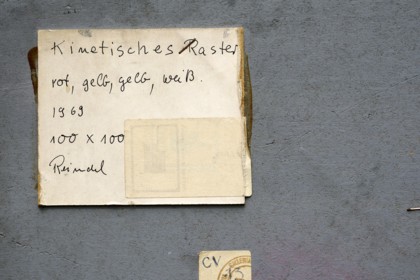 Kinetisches Raster
rot, gelb, gelb, weiß.
1969
100 x 100
Reindel
CV